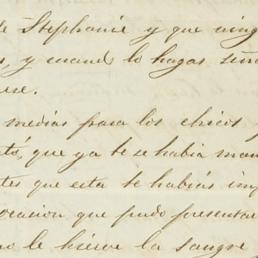 de Stephanie y que ning
s, y cuando lo hagas seña
ese.
medias para los chicos
tó, que ya te se habia man
tes que esta te habias im
ocasion que pudo presentar
no le hierve la sangre